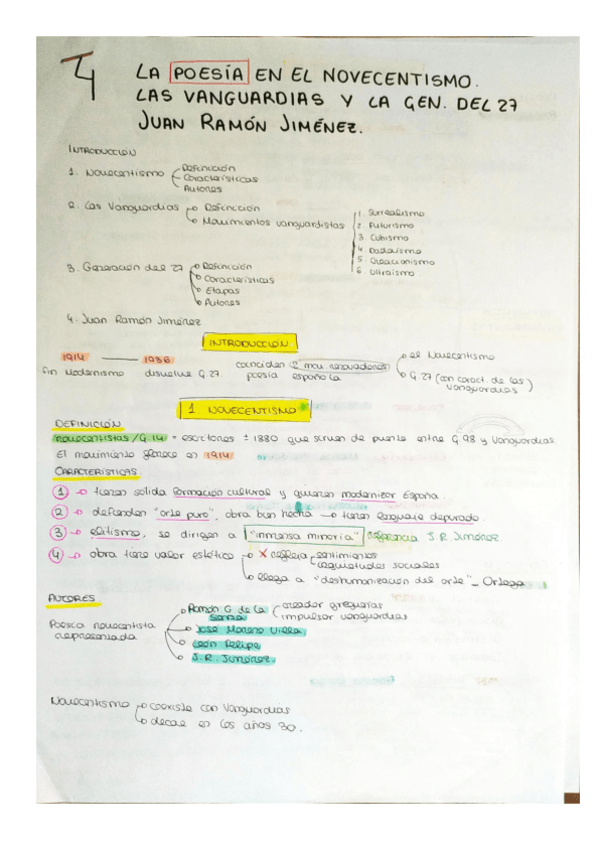 T4 LA POESÍA EN EL NOVECENTISMO.
LAS VANGUARDIAS Y LA GEN. DEL 27
JUAN RAMÓN JIMÉNEZ.
INTRODUCCIÓN
1. Novecentismo
Definición
Características
Autores
2. Las Vanguardias
Definición
Movimientos vanguardistas
1. Surrealismo
2. Futurismo
3. Cubismo
4. Dadaísmo
5. Creacionismo
6. Ultraísmo
3. Generación del 27
Definición
Características
Etapas
Autores
4. Juan Ramón Jiménez
INTRODUCCIÓN
1914 — 1936
fin Modernismo disuelve G.27
coinciden 2 mov. renovadores
poesía española
el Novecentismo
G.27 (con caract. de las vanguardias)
1 NOVECENTISMO
DEFINICIÓN
novecentistas/G.14 = escritores ± 1880 que sirven de puente entre G.98 y Vanguardias
El movimiento florece en 1914
CARACTERÍSTICAS
1 → tienen sólida formación cultural y quieren modernizar España.
2 → defienden "arte puro", obra bien hecha → tienen lenguaje depurado.
3 → elitismo, se dirigen a "inmensa minoría" J.R. Jiménez.
4 → obra tiene valor estético
X refleja
sentimientos
inquietudes sociales
llega a "deshumanización del arte" - Ortega
AUTORES
Poesía novecentista
representada
Ramón G. de la Serna
creador greguerías
impulsor vanguardias
José Moreno Villa
León Felipe
J.R. Jiménez.
Novecentismo
coexiste con Vanguardias
decae en los años 30.